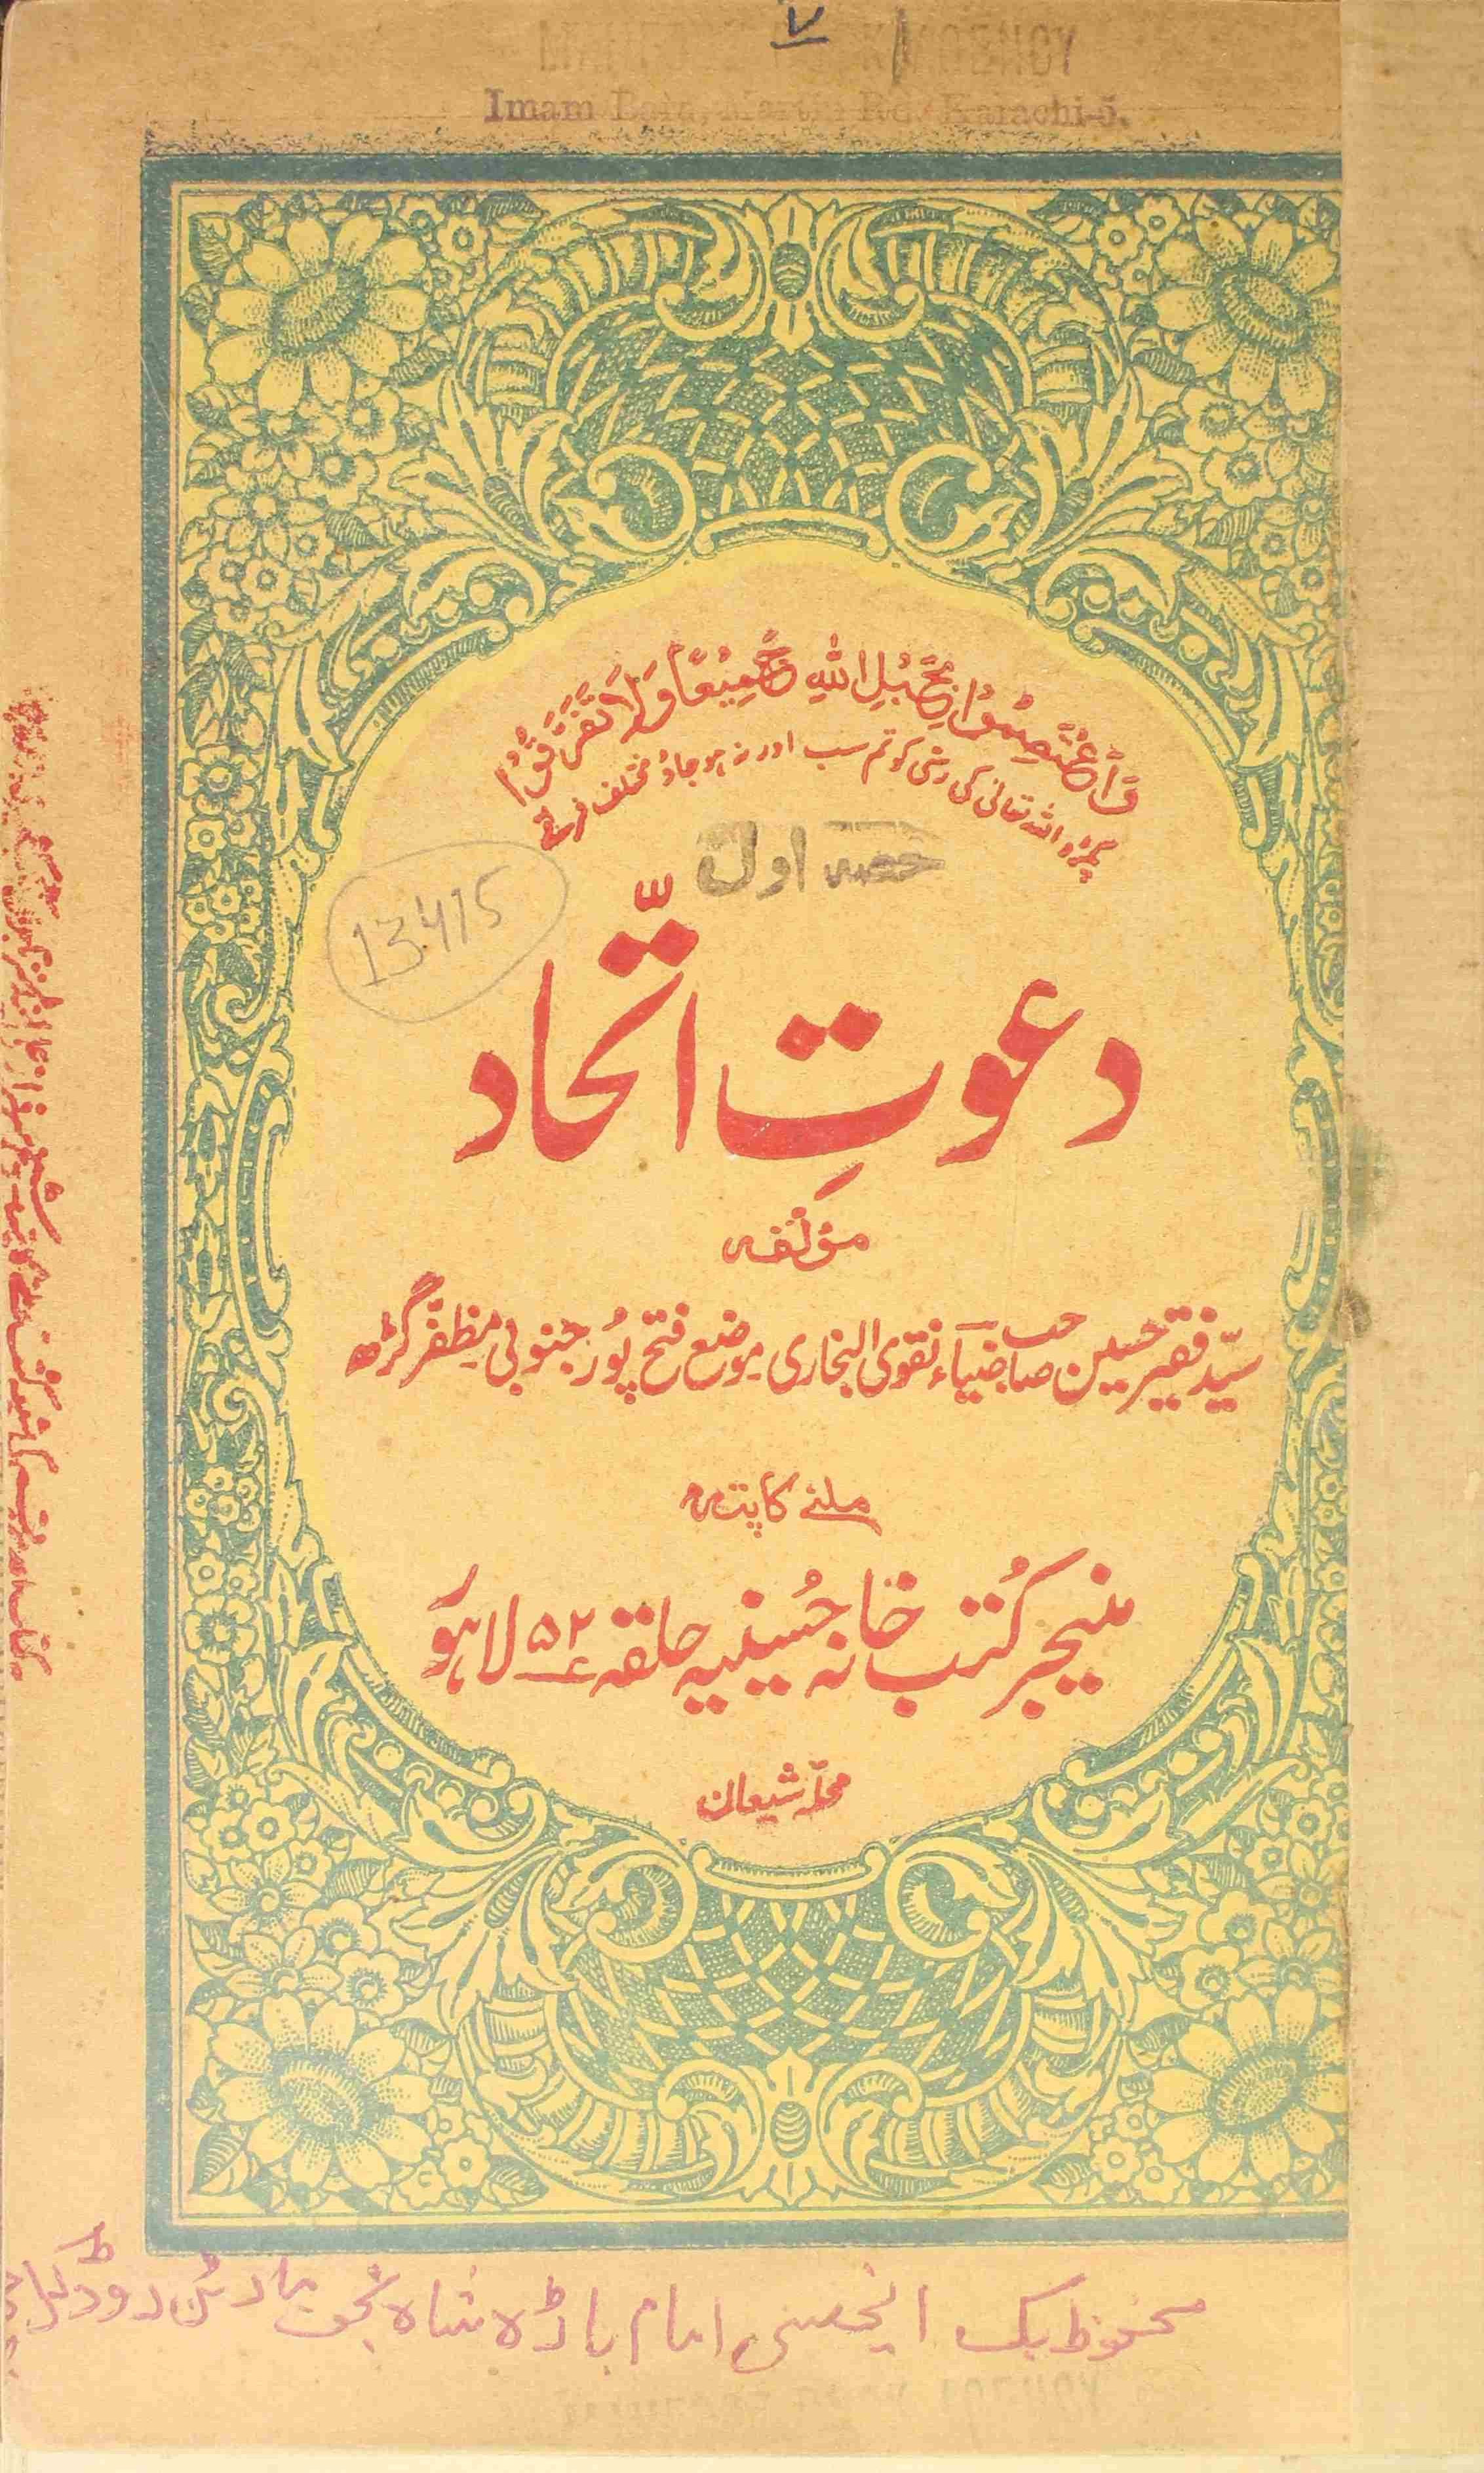 ۷
Imam Bara, Martin Rd. Karachi-5.
وَاعْتَصِمُوْا بِحَبْلِ اللهِ جَمِيْعًا وَّلَا تَفَرَّقُوْا
پکڑو اللہ تعالیٰ کی رسّی کو تم سب اور نہ ہو جاؤ مختلف فرقے
حصہ اول
13415
دعوتِ اتّحاد
مؤلفہ
سیّد فقیر حسین صاحب ضیاء نقوی البخاری موضع فتح پُور جنوبی مظفّر گڑھ
ملنے کا پتہ
منیجر کُتب خانہ حُسینیہ حلقہ ۵۲ لاہور
محلّہ شیعاں
محفوظ بک ایجنسی امام باڑہ شاہ نجف مارٹن روڈ کراچی